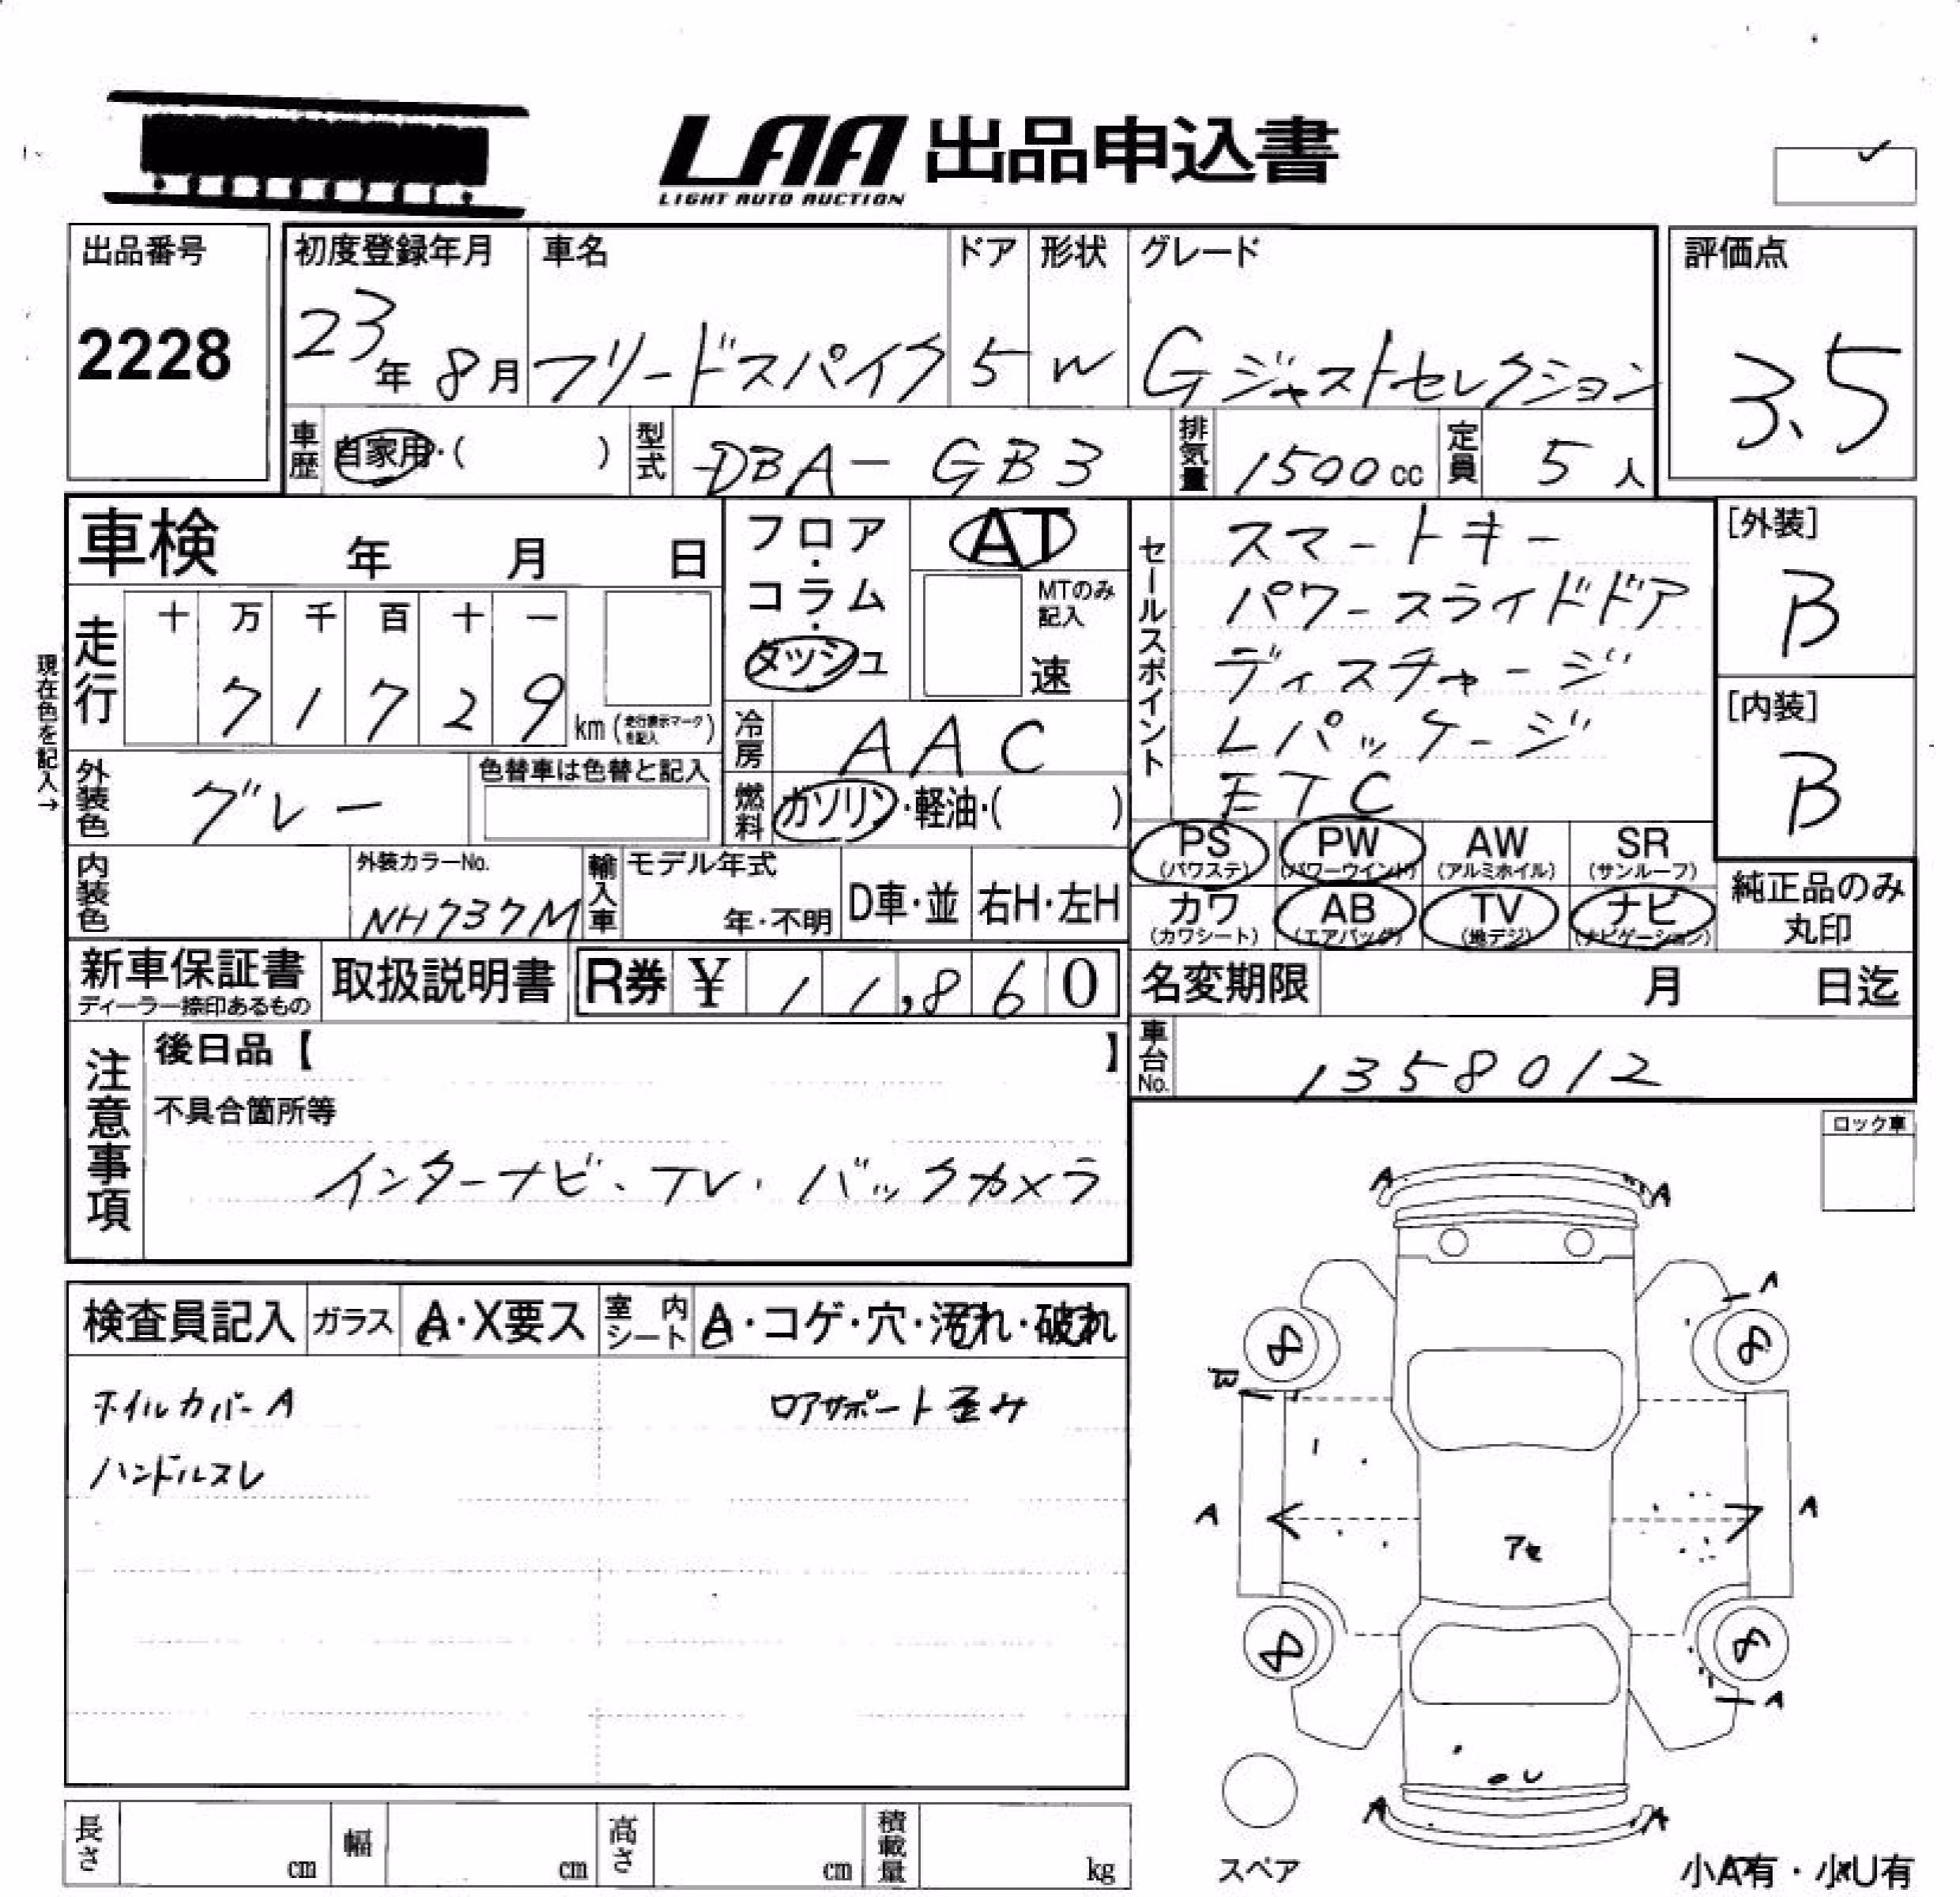 LAA 出品申込書
LIGHT AUTO AUCTION
出品番号
2228
初度登録年月
23年 8月
車名
フリードスパイク
ドア
5
形状
W
グレード
Gジャストセレクション
評価点
3.5
車歴 自家用・( )
型式 DBA-GB3
排気量 1500cc
定員 5人
車検 年 月 日
フロア・コラム・ダッシュ
AT
MTのみ記入
速
セールスポイント
スマートキー
パワースライドドア
ディスチャージ
Lパッケージ
ETC
[外装]
B
[内装]
B
現在色を記入→
走行
十 万 千 百 十 一
7 1 7 2 9 km (走行表示マークを記入)
冷房 AAC
外装色 グレー
色替車は色替と記入
燃料 ガソリン・軽油・( )
PS (パワステ) PW (パワーウインドウ) AW (アルミホイル) SR (サンルーフ)
カワ (カワシート) AB (エアバッグ) TV (地デジ) ナビ (ナビゲーション)
純正品のみ
丸印
内装色
外装カラーNo.
NH737M
輸入車
モデル年式
年・不明
D車・並
右H・左H
新車保証書
ディーラー捺印あるもの
取扱説明書
R券 ¥ 11,860
名変期限 月 日迄
車台No. 1358012
注意事項
後日品【 】
不具合箇所等
インターナビ、TV、バックカメラ
ロック車
検査員記入 ガラス A・X要ス 室内シート A・コゲ・穴・汚れ・破れ
ホイルカバーA
ロアサポート歪み
ハンドルスレ
A A
A
8 8
A A
アセ
8 8
A
U
A A
スペア
小A有・小U有
長さ cm 幅 cm 高さ cm 積載量 kg